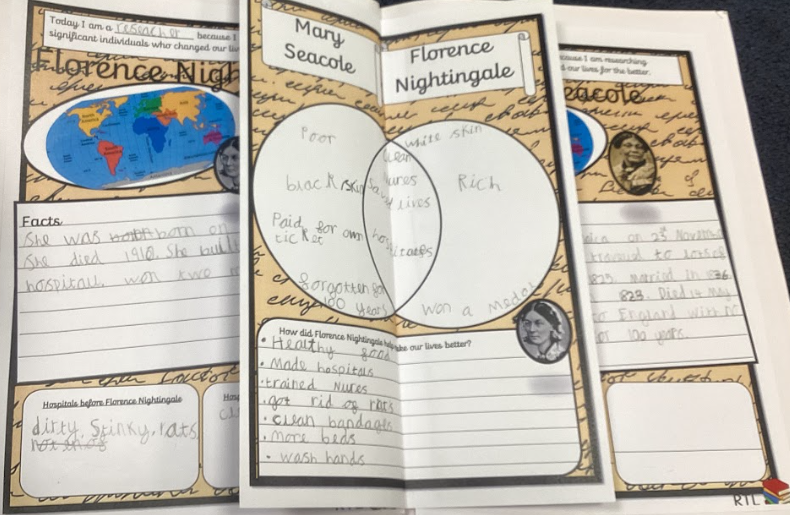 Today I am a researcher because I
significant individuals who changed our liv
Florence Nigh
Facts
She was born on
She died 1910. She buil
hospitall. won two m
Hospitals before Florence Nightingale
dirty, Stinky, rats,
Hosp
Mary
Seacole
Florence
Nightingale
Poor
black skin
Paid for own
ticket
forgotten for
100 years
clean
nures
Save
lives
hospitaels
white skin
Rich
Won a medal
How did Florence Nightingale make our lives better?
• Healthy food
• Made hospitals
• trained Nures
• got rid of rats
• clean bandages
• more beds
• wash hands
cause I am researching
d our lives for the better.
eacole
on 23rd Novembe
to
1825 married in 836
823. Died 14 May
to England with no
or 100 years.
RTL